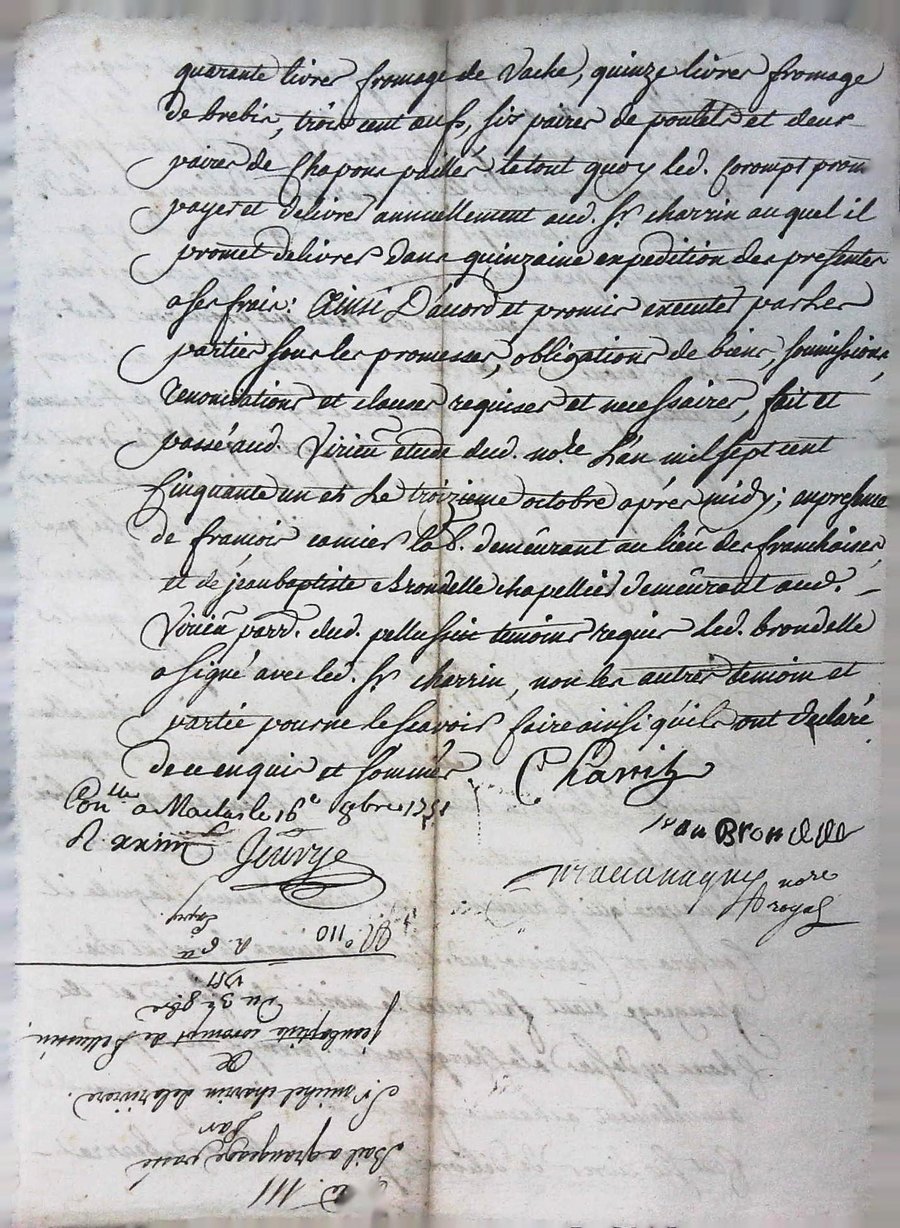 quarante livres fromage de vache, quinze livres fromage
de brebis, trois cent œufs, six paires de poulets et deux
paires de Chapons paillés letout quoy led. Corompt prom
payer et delivrer annuellement aud. Sr. charrin au quel il
promet delivrer dans quinzaine expedition des presentes
a ses frais: Ainsi D'acord et promis executer par les
parties sous les promesses, obligations de biens, soumissions,
renonciations et clauses requises et necessaires, fait et
passé aud. Virieu etude dud. nore. L'an mil sept cent
Cinquante un et Le troizieme octobre après midy; en presence
de francois camier lab. demeurant au lieu des franchises
et de jean baptiste Brondelle chapellier demeurant aud.
Virieu parr. dud. pellussin temoins requis led. brondelle
a signé avec led. Sr. charrin, non les autres temoin et
partie pour ne le scavoir faire ainsi qu'ils ont declaré
de ce enquis et sommés. Charrin
Conlle a Maclas le 16e 8bre 1751
R. Jeurye
Jean Brondelle
nore royal
No. 110
R. 6
du 3e 8bre
1751.
jean baptiste corompt de Pellussin
a
Sr. michel charrin de la riviere.
Par
Bail a grangeage passé
111